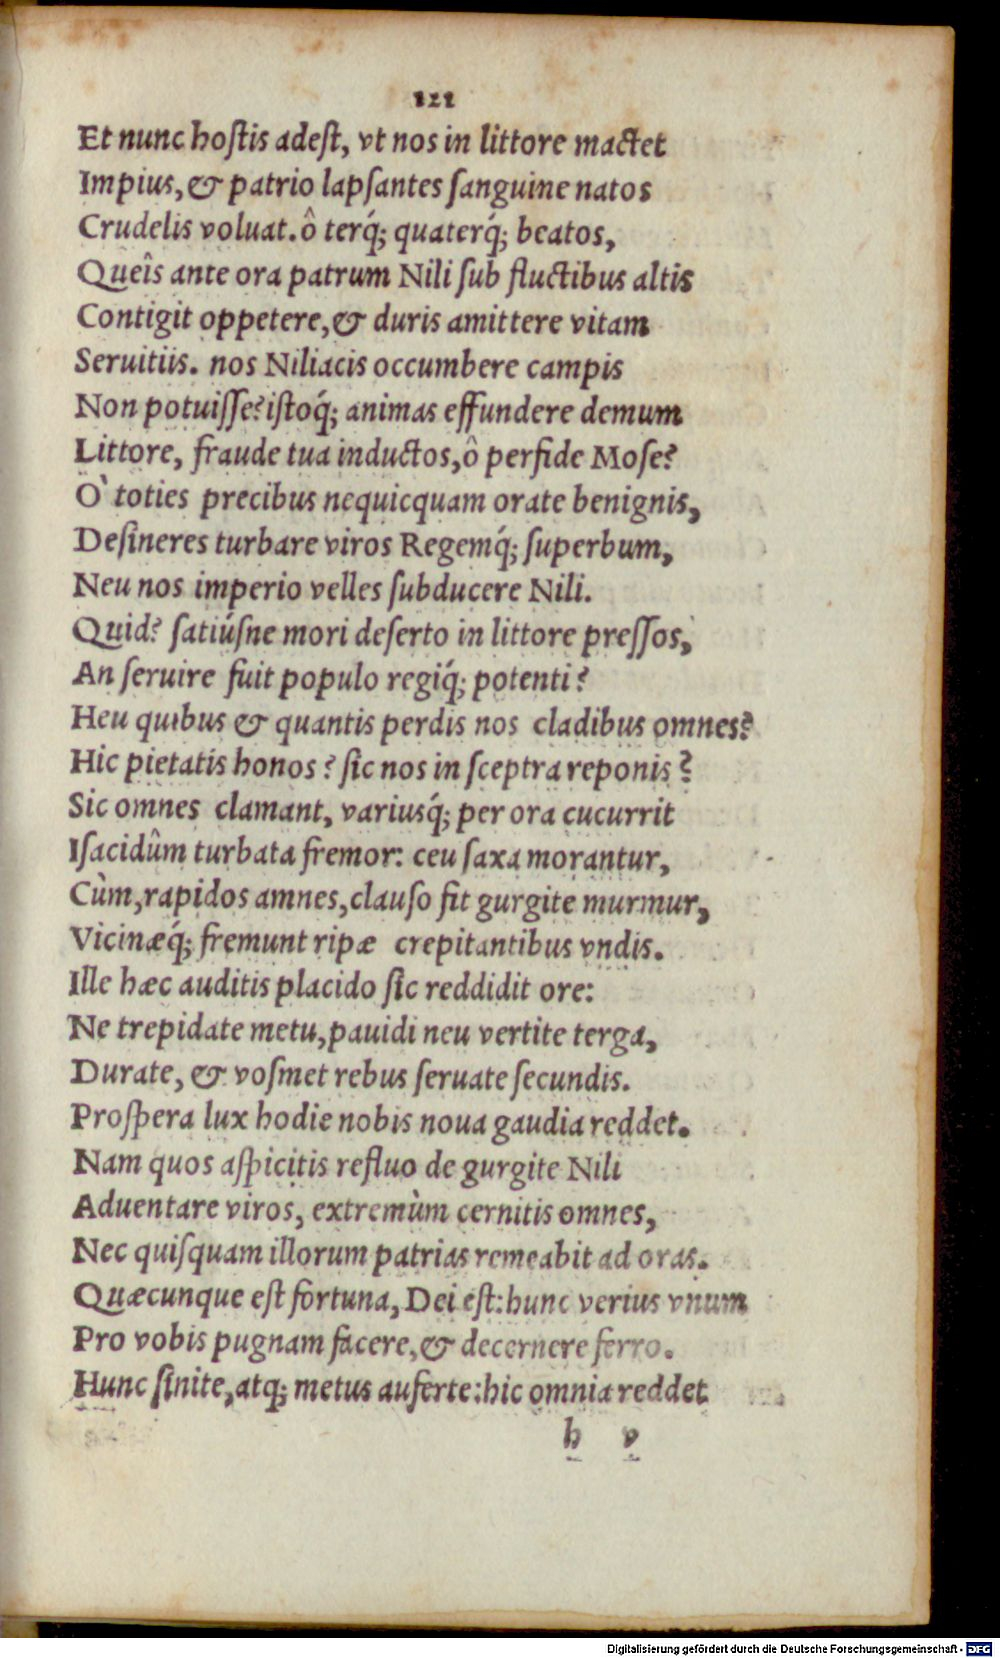 121
Et nunc hostis adest, vt nos in littore mactet
Impius, & patrio lapsantes sanguine natos
Crudelis voluat. ô terq́; quaterq́; beatos,
Queîs ante ora patrum Nili sub fluctibus altis
Contigit oppetere, & duris amittere vitam
Seruitiis. nos Niliacis occumbere campis
Non potuisse? istoq́; animas effundere demum
Littore, fraude tua inductos, ô perfide Mose?
O` toties precibus nequicquam orate benignis,
Desineres turbare viros Regemq́; superbum,
Neu nos imperio velles subducere Nili.
Quid? satiúsne mori deserto in littore pressos,
An seruire fuit populo regiq́; potenti?
Heu quibus & quantis perdis nos cladibus omnes?
Hic pietatis honos? sic nos in sceptra reponis?
Sic omnes clamant, variusq́; per ora cucurrit
Isacidûm turbata fremor: ceu saxa morantur,
Cùm, rapidos amnes, clauso fit gurgite murmur,
Vicinæq́; fremunt ripæ crepitantibus vndis.
Ille hæc auditis placido sic reddidit ore:
Ne trepidate metu, pauidi neu vertite terga,
Durate, & vosmet rebus seruate secundis.
Prospera lux hodie nobis noua gaudia reddet.
Nam quos aspicitis refluo de gurgite Nili
Aduentare viros, extremùm cernitis omnes,
Nec quisquam illorum patrias remeabit ad oras.
Quæcunque est fortuna, Dei est: hunc verius vnum
Pro vobis pugnam facere, & decernere ferro.
Hunc sinite, atq; metus auferte: hic omnia reddet
h v
Digitalisierung gefördert durch die Deutsche Forschungsgemeinschaft - DFG